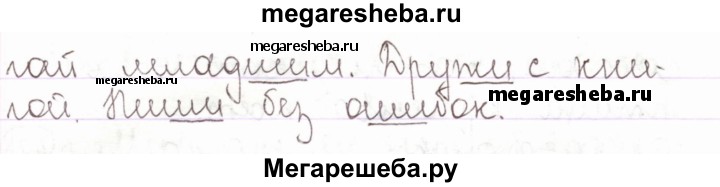 megaresheba.ru
megaresheba.ru
гай младшим. Дружи с кни-
megaresheba.ru
megaresheba.ru
гой. Пиши без ошибок.
Мегарешеба.ру